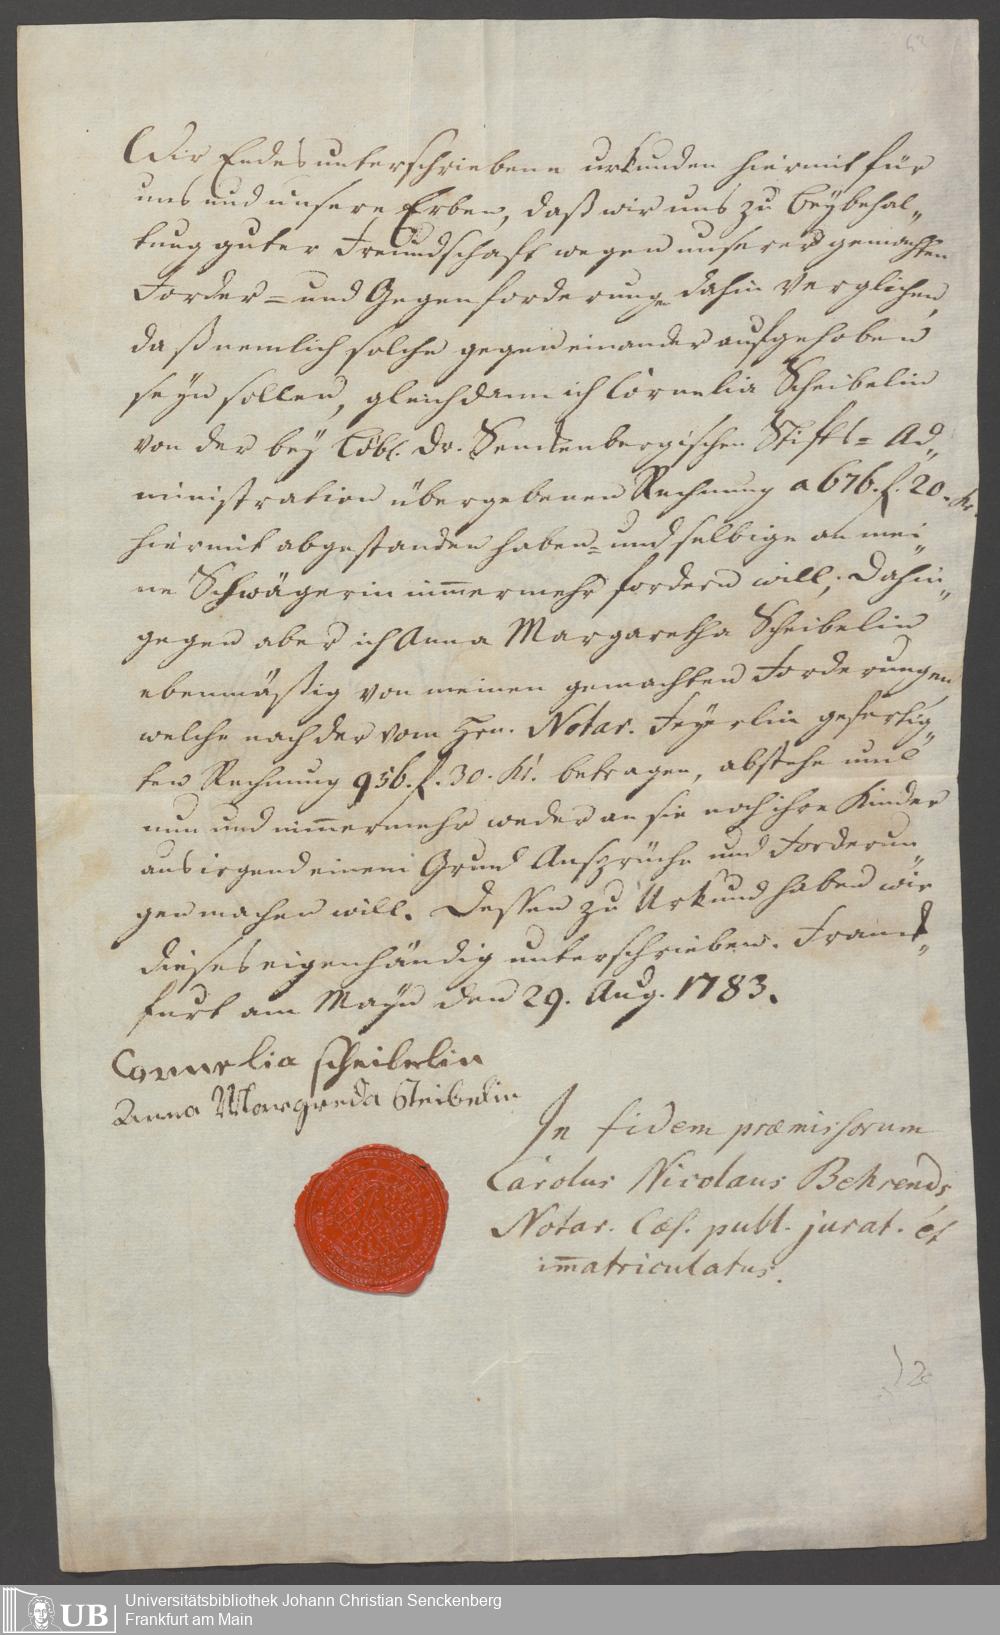 Wir Endes unterschriebene urkunden hiermit für
uns und unsere Erben, daß wir uns zu Beybehal„
tung guter Freundschaft wegen unserer gemachten
Forder= und Gegenforderungen dahin verglichen,
daß nemlich solche gegen einander aufgehoben
seyn sollen, gleichdann ich Cornelia Scheibelin
von der bey Löbl. Dr. Senckenbergischen Stiffts= Ad„
ministration übergebenen Rechnung a 676. f. 20. Kr.
hiermit abgestanden haben= und selbige an mei„
ne Schwägerin nimmermehr fordern will; Dahin„
gegen aber ich Anna Margaretha Scheibelin
ebenmäßig von meinen gemachten Forderungen,
welche nach der vom Hrn. Notar. Feyerlin gefertig„
ten Rechnung 956. f. 30. Kr. betragen, abstehe und
nun und nimmermehr weder an sie noch ihre Kinder
aus irgend einem Grund Ansprüche und Forderun„
gen machen will. Dessen zu Urkund haben wir
dieses eigenhändig unterschrieben. Franck„
furt am Mayn den 29. Aug. 1783.
Cornelia scheibelin
Anna Margreda Steibelin
In fidem præmissorum
Carolus Nicolaus Behrends,
Notar. Cæs. publ. jurat. et
im̅atriculatus.
UB
Universitätsbibliothek Johann Christian Senckenberg
Frankfurt am Main